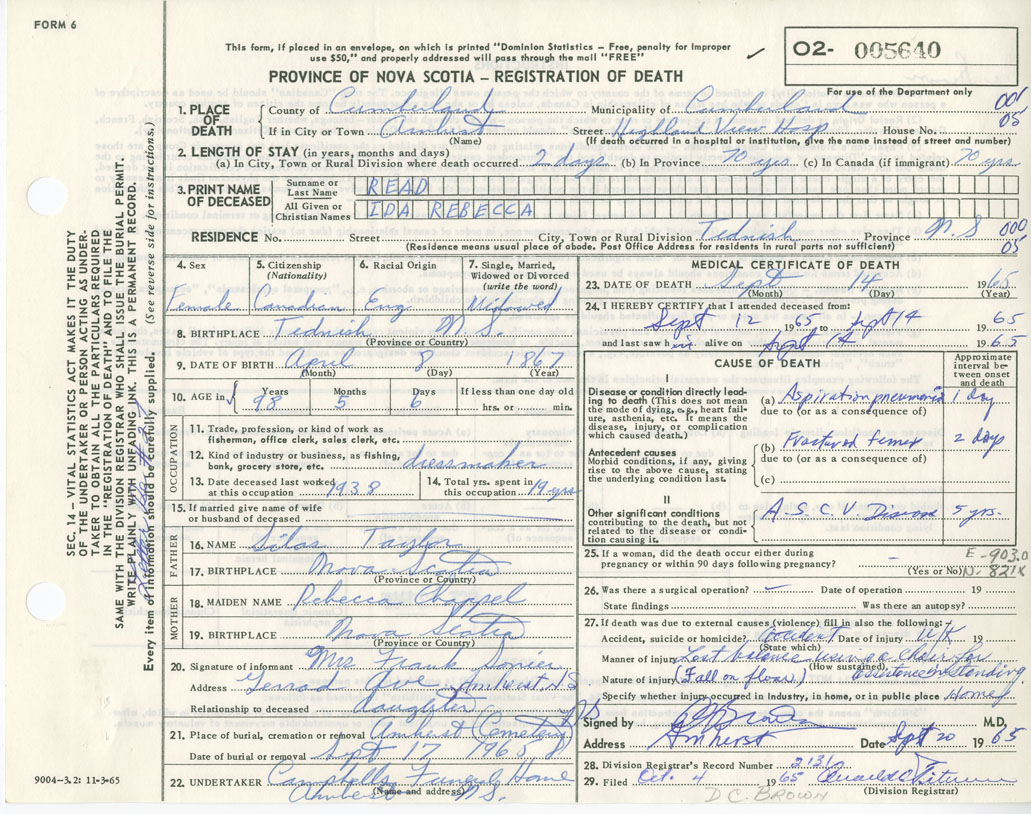 FORM 6
This form, if placed in an envelope, on which is printed "Dominion Statistics – Free, penalty for improper
use $50," and properly addressed will pass through the mail "FREE"
O2- 005640
PROVINCE OF NOVA SCOTIA – REGISTRATION OF DEATH
For use of the Department only
001
05
1. PLACE OF DEATH
County of Cumberland Municipality of Cumberland
If in City or Town Amherst Street Highland View Hosp House No.
(Name) (If death occurred in a hospital or institution, give the name instead of street and number)
2. LENGTH OF STAY (in years, months and days)
(a) In City, Town or Rural Division where death occurred 2 days (b) In Province 70 yrs. (c) In Canada (if immigrant) 70 yrs.
3. PRINT NAME OF DECEASED
Surname or Last Name READ
All Given or Christian Names IDA REBECCA
RESIDENCE No. Street City, Town or Rural Division Tidnish Province N.S
000
05
(Residence means usual place of abode. Post Office Address for residents in rural parts not sufficient)
4. Sex 5. Citizenship (Nationality) 6. Racial Origin 7. Single, Married, Widowed or Divorced (write the word)
Female Canadian Eng Widowed
8. BIRTHPLACE Tidnish N.S.
(Province or Country)
9. DATE OF BIRTH April 8 1867
(Month) (Day) (Year)
10. AGE in Years Months Days If less than one day old
98 5 6 hrs. or min.
OCCUPATION
11. Trade, profession, or kind of work as
fisherman, office clerk, sales clerk, etc.
12. Kind of industry or business, as fishing,
bank, grocery store, etc. dressmaker
13. Date deceased last worked at this occupation 1938
14. Total yrs. spent in this occupation 19 yrs
15. If married give name of wife
or husband of deceased
FATHER
16. NAME Silas Taylor
17. BIRTHPLACE Nova Scotia
(Province or Country)
MOTHER
18. MAIDEN NAME Rebecca Chappel
19. BIRTHPLACE Nova Scotia
(Province or Country)
20. Signature of informant Mrs Frank
Address Ave Amherst, NS
Relationship to deceased daughter
21. Place of burial, cremation or removal Amherst Cemetery NS
Date of burial or removal Sept 17 1965
22. UNDERTAKER Campbells Funeral Home
(Name and address)
Amherst N.S.
MEDICAL CERTIFICATE OF DEATH
23. DATE OF DEATH Sept 14 1965
(Month) (Day) (Year)
24. I HEREBY CERTIFY that I attended deceased from:
Sept 12 1965 to Sept 14 65
and last saw h alive on Sept 14 1965
CAUSE OF DEATH
Approximate interval between onset and death
I
Disease or condition directly leading to death (This does not mean the mode of dying, e.g., heart failure, asthenia, etc. It means the disease, injury, or complication which caused death.)
(a) Aspiration pneumonia 1 day
due to (or as a consequence of)
Antecedent causes
Morbid conditions, if any, giving rise to the above cause, stating the underlying condition last.
(b) Fractured femur 2 days
due to (or as a consequence of)
(c)
II
Other significant conditions
contributing to the death, but not related to the disease or condition causing it.
A.S.C.V. Disease 5 yrs.
25. If a woman, did the death occur either during
pregnancy or within 90 days following pregnancy?
(Yes or No)
E-903.0
N-821X
26. Was there a surgical operation? – Date of operation 19
State findings Was there an autopsy?
27. If death was due to external causes (violence) fill in also the following:
Accident, suicide or homicide? Accident Date of injury U/K 19
(State which)
Manner of injury Lost balance using a chair for
(How sustained)
Nature of injury (Fall on floor.) assistance in standing
Specify whether injury occurred in Industry, in home, or in public place Home
Signed by M.D.
Address Amherst Date Sept 20 1965
28. Division Registrar's Record Number
29. Filed Oct. 4 1965
(Division Registrar)
D C. BROWN
9004–3.2: 11-3-65
SEC. 14 – VITAL STATISTICS ACT MAKES IT THE DUTY
OF THE UNDERTAKER OR PERSON ACTING AS UNDER-
TAKER TO OBTAIN ALL THE PARTICULARS REQUIRED
IN THE "REGISTRATION OF DEATH" AND TO FILE THE
SAME WITH THE DIVISION REGISTRAR WHO SHALL ISSUE THE BURIAL PERMIT.
WRITE PLAINLY WITH UNFADING INK. THIS IS A PERMANENT RECORD.
Every item of information should be carefully supplied. (See reverse side for instructions.)